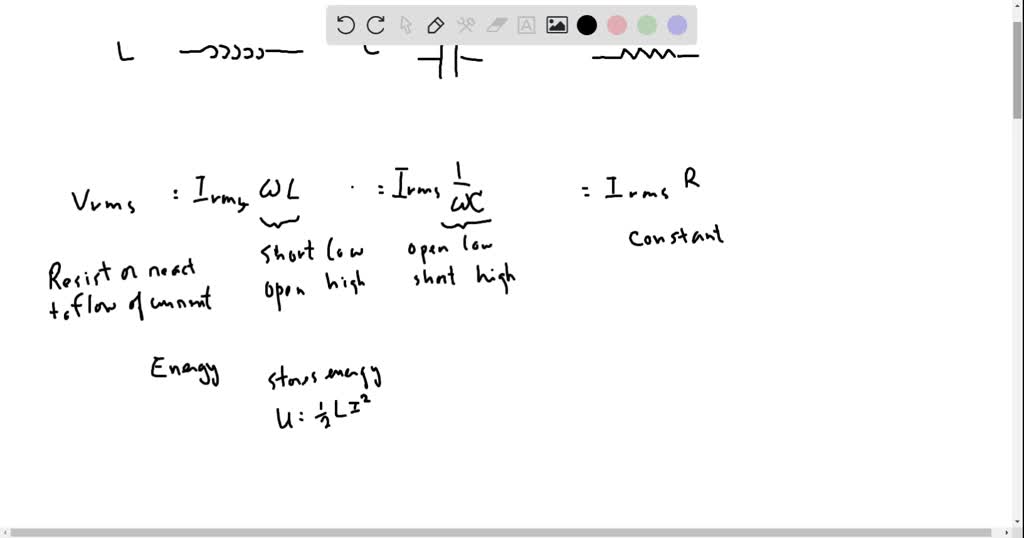 L C
Vrms = Irms ωL = Irms 1/ωC = Irms R
short low open low constant
open high short high
Resist or react
to flow of current
Energy stores energy
U = 1/2 LI²